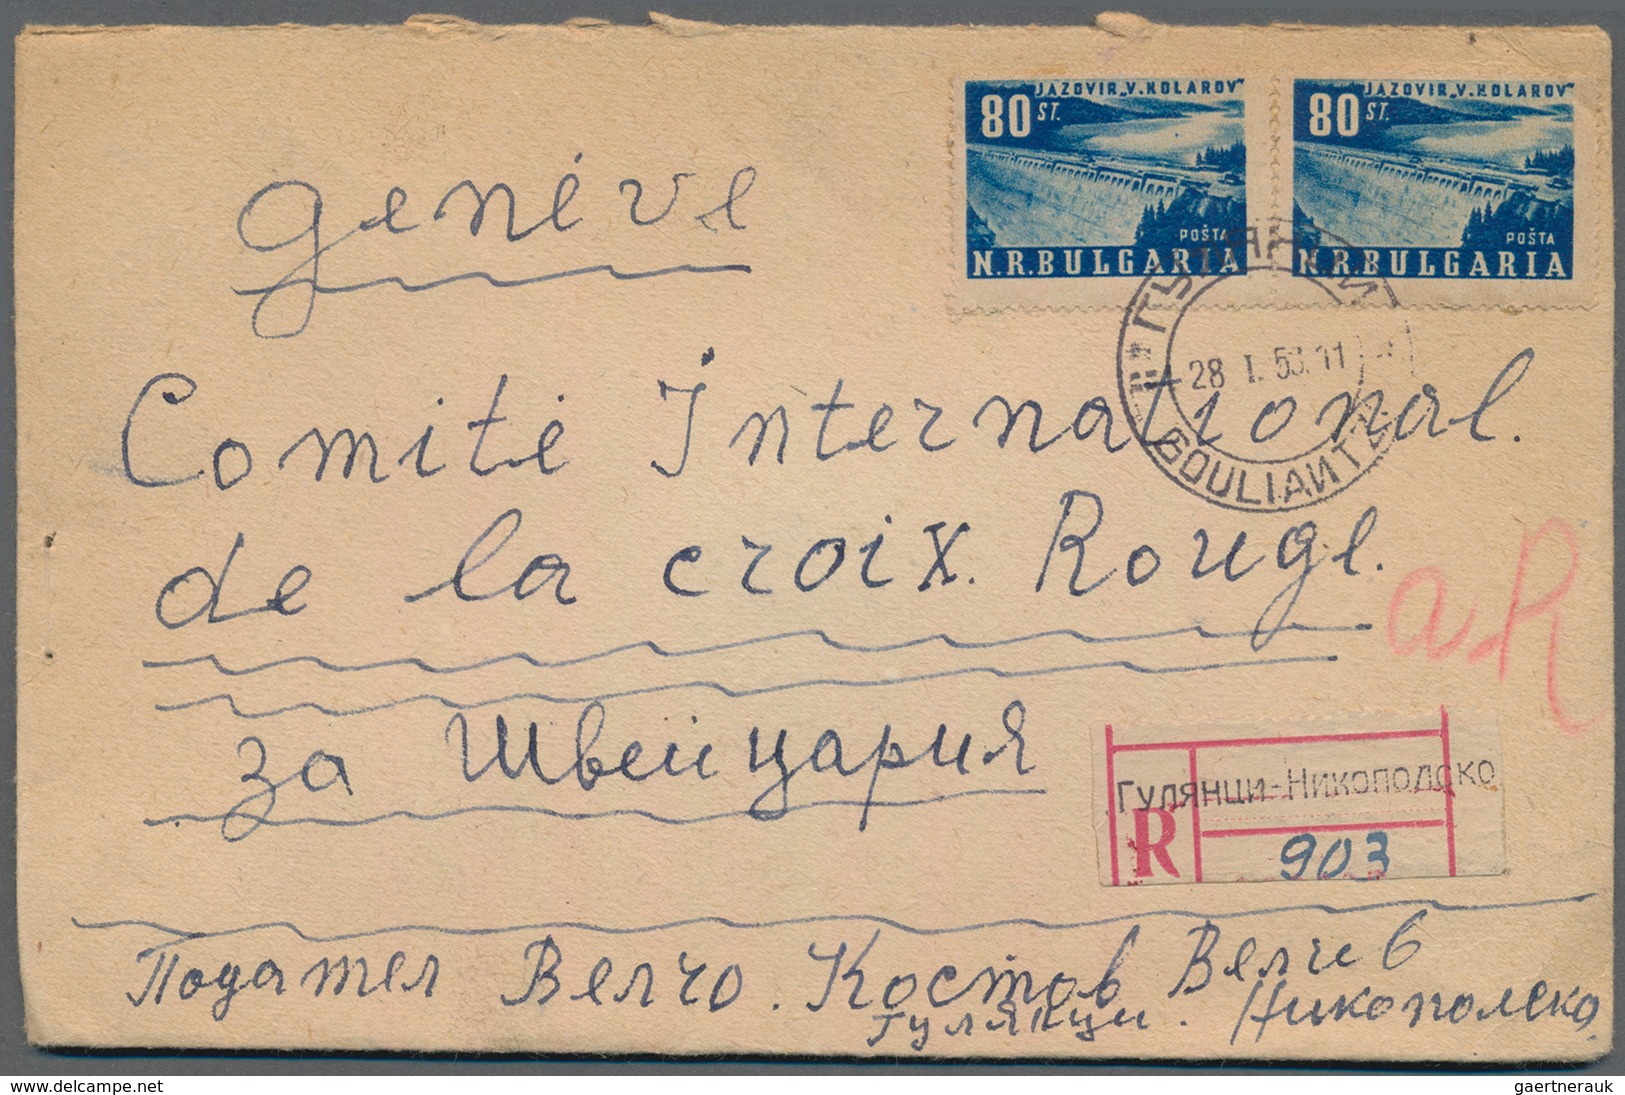 JAZOVIR „V. KOLAROV"
80 ST.
POŠTA
N.R.BULGARIA
JAZOVIR „V. KOLAROV"
80 ST.
POŠTA
N.R.BULGARIA
Genéve
28 I. 53. 11
GOULIANTZI
Comité International.
de la croix. Rouge.
aR
за Швейцария
Гулянци-Никополско
R
903
Подател Велчо. Костов Велчев
Гулянци. Никополско.
delcampe.net
gaertnerauk